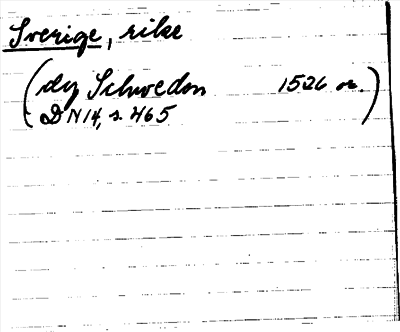 Sverige, rike
(dy Schweden 1526 or.)
DN 14, s. 465